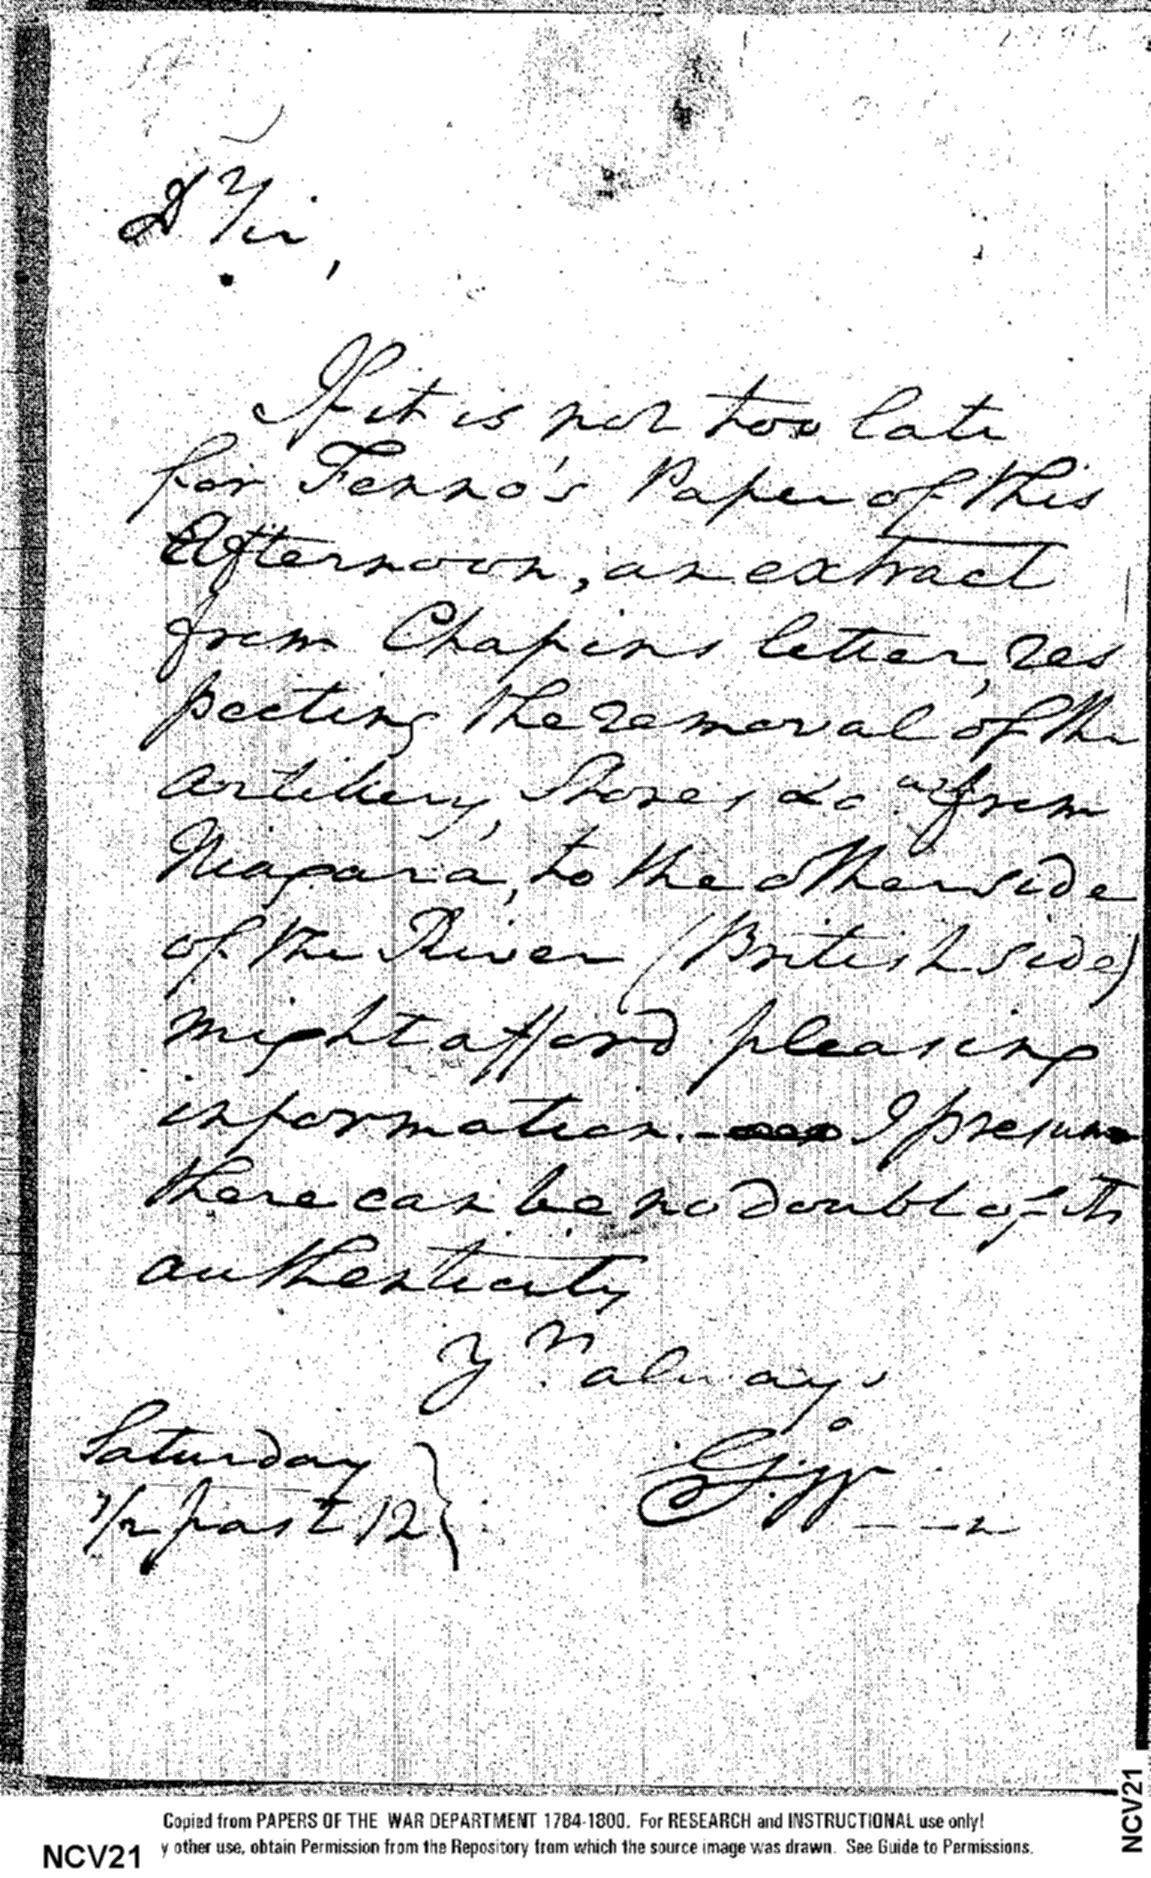 Dr Sir,
If it is not too late
for Fenno's Paper of this
Afternoon, an extract
from Chapins letter, res
pecting the removal of the
artillery, Stores &ca from
Niagara, to the otherside
of the River (British side)
might afford pleasing
information. I presume
there can be no doubt of its
authenticity
Yrs always
Go: W---n
Saturday
1/2 past 12
Copied from PAPERS OF THE WAR DEPARTMENT 1784-1800. For RESEARCH and INSTRUCTIONAL use only!
y other use, obtain Permission from the Repository from which the source image was drawn. See Guide to Permissions.
NCV21
NCV21